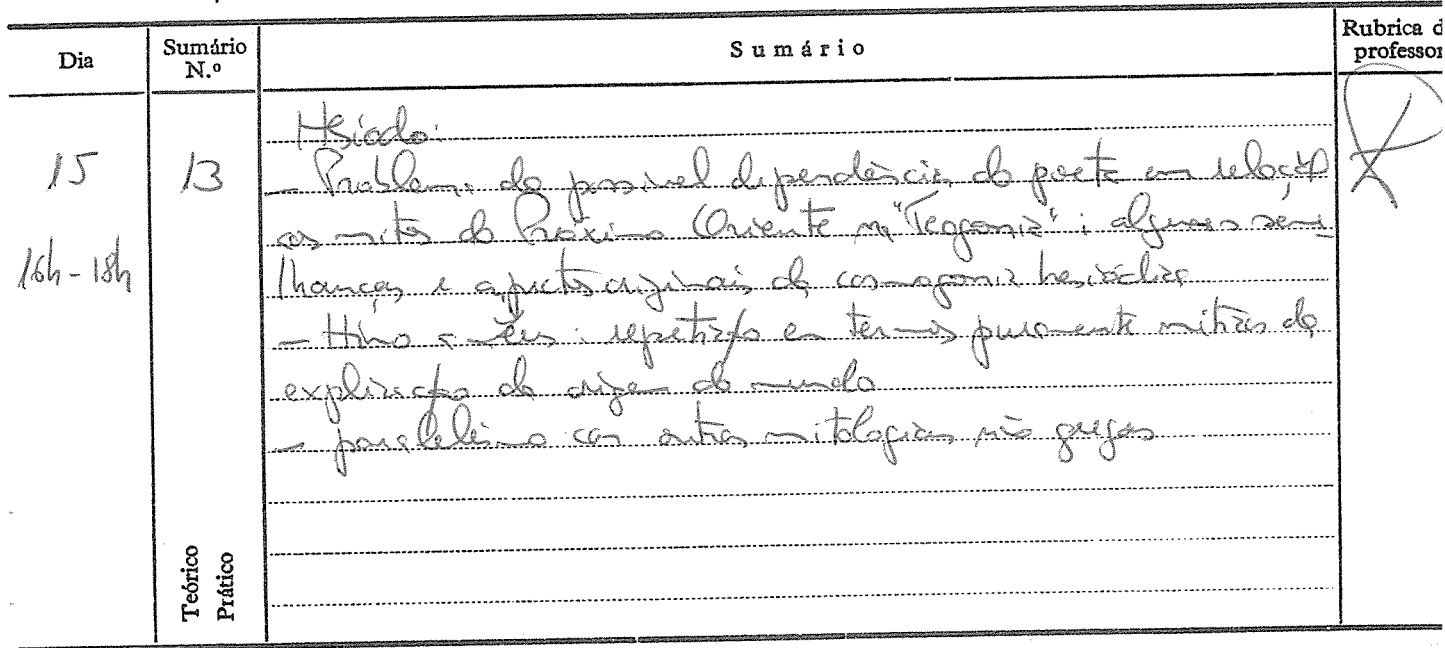 Dia
Sumário N.º
Sumário
Rubrica d
professor
15
13
16h-18h
Hesíodo:
- Problema da possível dependência do poeta em relação
aos mitos do Próximo Oriente na "Teogonia"; algumas seme
lhanças e aspectos originais da cosmogonia hesiódica
- Hino a Zeus: repetição em termos puramente míticos da
explicação da origem do mundo
- paralelismo com outras mitologias não gregas
Teórico
Prático